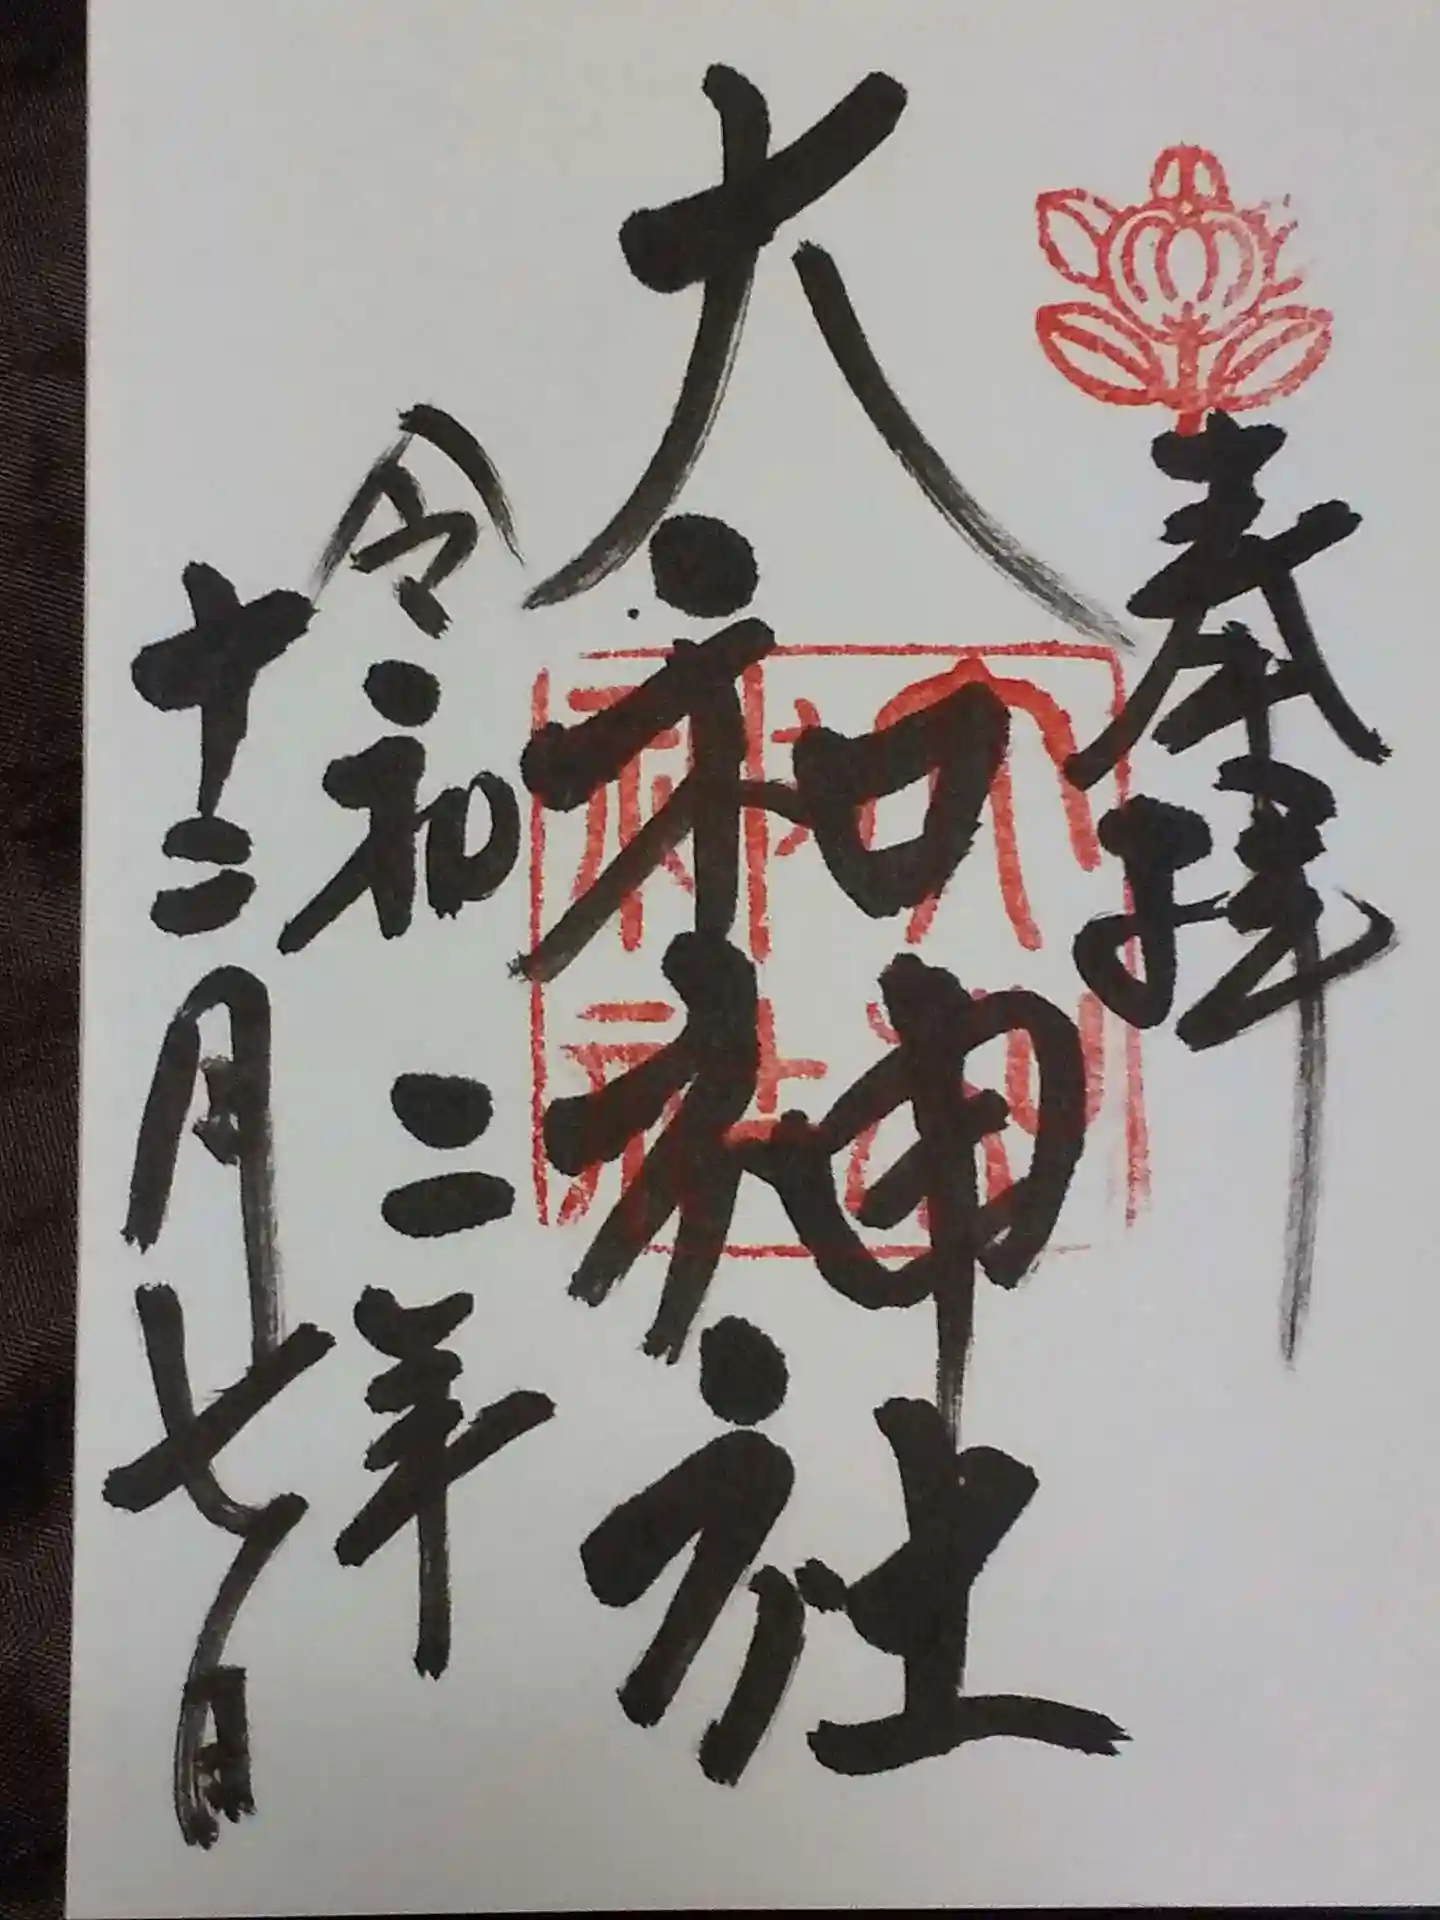 奉拝
大和神社
令和二年
十二月七日
大和神社